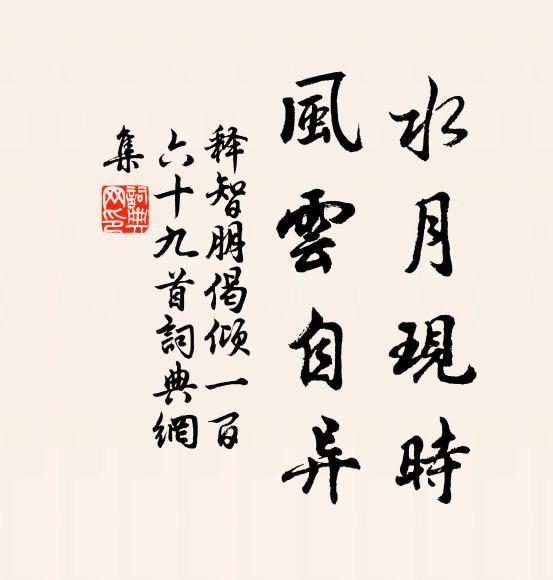 水月現時
風雲自异
释智朋偈倾一百
六十九首詞典網
集
詞典網印